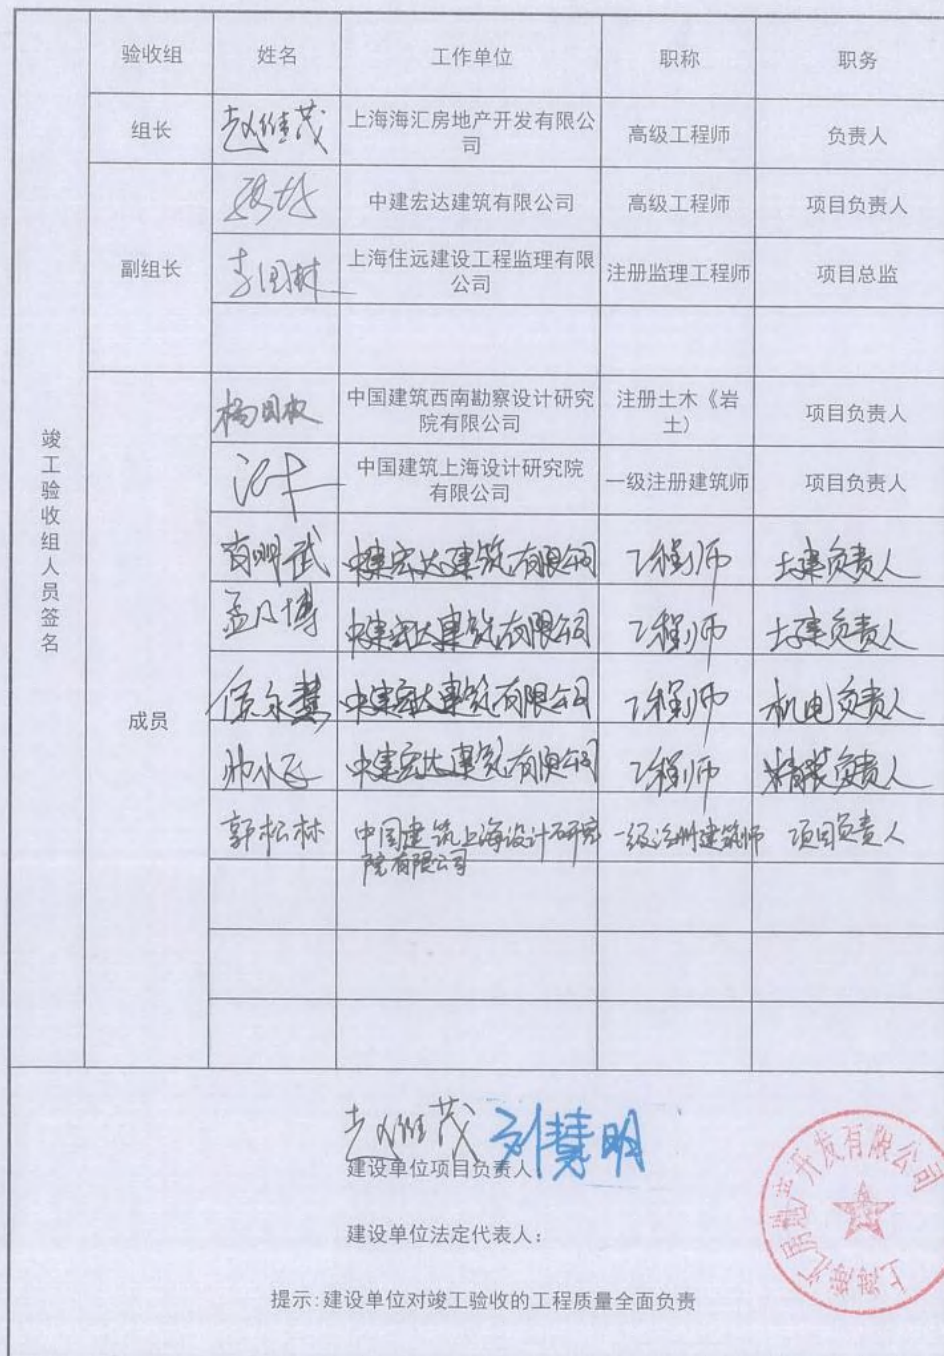 验收组 姓名 工作单位 职称 职务
组长 赵继茂 上海海汇房地产开发有限公
司 高级工程师 负责人
中建宏达建筑有限公司 高级工程师 项目负责人
副组长 李国林 上海住远建设工程监理有限
公司 注册监理工程师 项目总监
杨国权 中国建筑西南勘察设计研究
院有限公司 注册土木《岩
土） 项目负责人
中国建筑上海设计研究院
有限公司 一级注册建筑师 项目负责人
竣工验收组人员签名
肖明武 中建宏达建筑有限公司 工程师 土建负责人
孟凡博 中建宏达建筑有限公司 工程师 土建负责人
成员 中建宏达建筑有限公司 工程师 机电负责人
帅小飞 中建宏达建筑有限公司 工程师 精装负责人
郭松林 中国建筑上海设计研究
院有限公司 一级注册建筑师 项目负责人
赵继茂 刘慧明
建设单位项目负责人：
建设单位法定代表人：
提示:建设单位对竣工验收的工程质量全面负责
上海海汇房地产开发有限公司